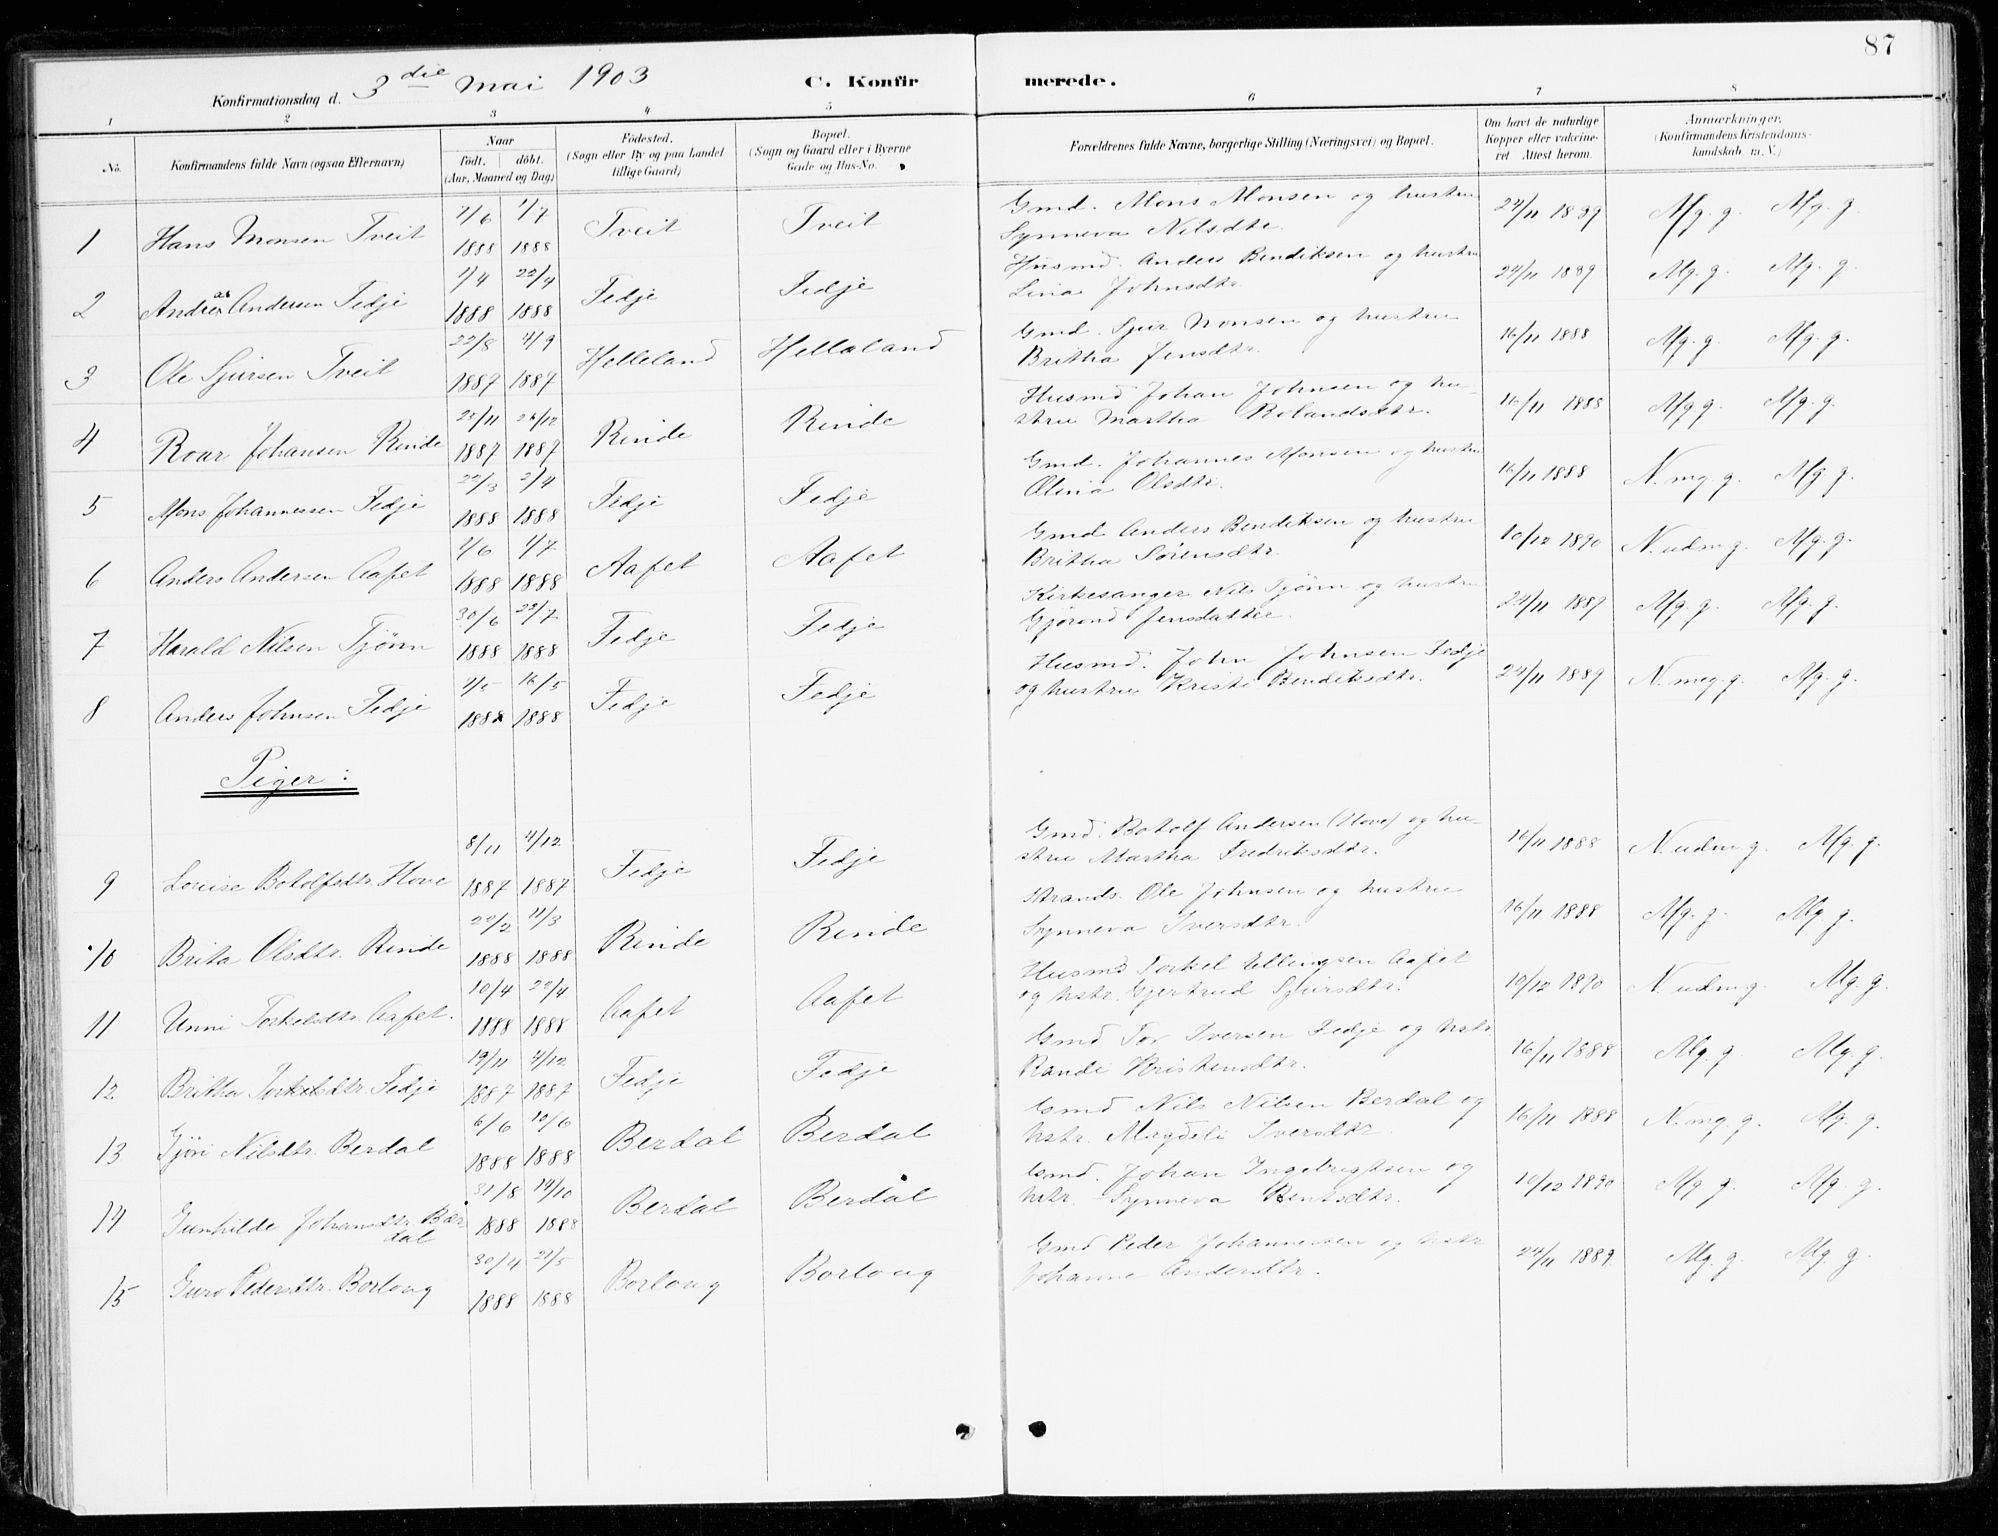 87
Konfirmationsdag d. 3die Mai 1903 C. Konfir merede.
1 2 3 4 5 6 7 8
No. Konfirmandens fulde Navn (ogsaa Efternavn) Naar født. døbt. (Aar, Maaned og Dag) Fødested. (Sogn eller By og paa Landet tillige Gaard) Bopæl. (Sogn og Gaard eller i Byerne Gade og Hus-No. Forældrenes fulde Navne, borgerlige Stilling (Næringsvei) og Bopæl. Om havt de naturlige Kopper eller vakcineret Attest herom. Anmærkninger. (Konfirmandens Kristendomskundskab m.V.)
1 Hans Monsen Tveit 7/6 1888 1/7 1888 Tveit Tveit Gmd. Mons Monsen og hustru Synneva Nilsdtr. 24/11 1889 Mg. g. Mg. g.
2 Andreas Andersen Fedje 1/4 1888 22/4 1888 Fedje Fedje Husmd. Anders Bendiksen og hustru Lina Johnsdtr. 24/11 1889 Mg. g. Mg. g.
3 Ole Sjursen Tveit 22/8 1887 4/9 1887 Helleland Hellaland Gmd. Sjur Monsen og hustru Britha Jensdtr. 16/11 1888 Mg. g. Mg. g.
4 Roar Johansen Rinde 1887 1887 Rinde Rinde Husmd Johan Johnsen og hustru Martha Rolandsdtr. 16/11 1888 Mg g. Mg. g.
5 Mons Johannessen Fedje 22/3 1888 2/4 1888 Fedje Fedje Gmd. Johannes Monsen og hustru Olina Olsdtr. 16/11 1888 N. mg. g. Mg g.
6 Anders Andersen Aafet 1/6 1888 1/7 1888 Aafet Aafet Gmd Anders Bendiksen og hustru Britha Sørensdtr. 10/12 1890 N. udm g. Mg. g.
7 Harald Nilsen Tjønn 30/6 1888 22/7 1888 Fedje Fedje Kirkesanger Nils Tjønn og hustru Gjørond Jensdatter. 24/11 1889 Mg. g. Mg. g.
8 Anders Johnsen Fedje 1888 16/5 1888 Fedje Fedje Husmd. John Johnsen Fedje og hustru Kristi Bendiksdtr. 24/11 1889 N. meg. g. Mg. g.
Piger:
9 Louise Botolfsdtr. Hove 8/11 1887 4/12 1887 Fedje Fedje Gmd. Botolf Andersen (Hove) og hustru Martha Fredriksdtr. 16/11 1888 N. udm g. Mg. g.
10 Brita Olsdtr. Rinde 22/2 1888 11/3 1888 Rinde Rinde Strands. Ole Johnsen og hustru Synneva Iversdtr. 16/11 1888 Mg. g. Mg g.
11 Unni Torkelsdtr. Aafet. 10/4 1888 22/4 1888 Aafet Aafet Husmd Torkel Ellingsen Aafet og hstr. Gjertrud Sjursdtr. 10/12 1890 N. udm g. Mg. g.
12 Britha Torkelsdtr. Fedje 19/11 1887 4/12 1887 Fedje Fedje Gmd Tor Iversen Fedje og hstr Randi Kristensdtr. 16/11 1888 Mg. g. Mg. g.
13 Gjøri Nilsdtr. Berdal 6/6 1888 10/6 1888 Berdal Berdal Gmd Nils Nilsen Berdal og hstr. Magdeli Iversdtr. 16/11 1888 N. mg. g. Mg. g.
14 Gunhilde Johansdtr. Bærdal 31/8 1888 14/10 1888 Berdal Berdal Gmd. Johan Ingebrigtsen og hstr. Synneva Bentsdtr. 10/12 1890 Mg g. Mg. g.
15 Guro Pedersdtr. Borlong 30/4 1888 21/5 1888 Borlong Borlong Gmd Peder Johannessen og hstr Johanne Andersdtr. 24/11 1889. Mg. g. Mg. g.